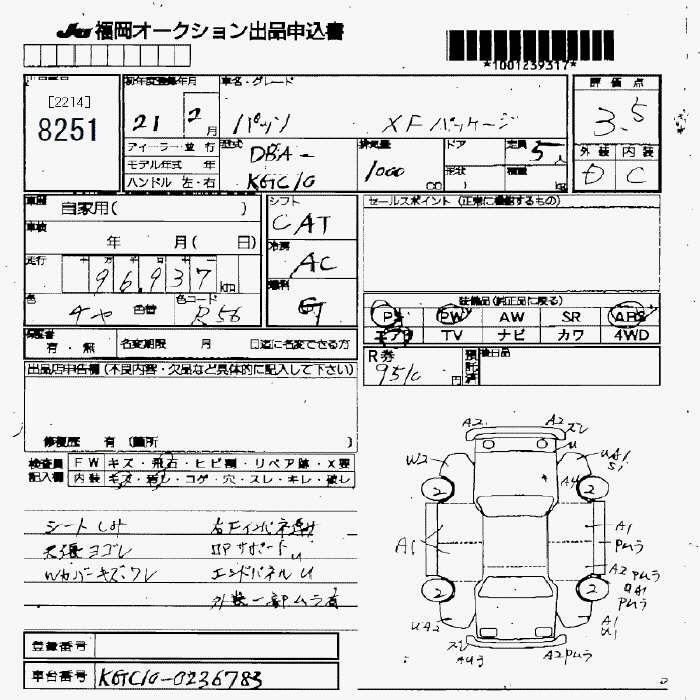 JU 福岡オークション出品申込書
*1001239317*
[2214]
8251
初年度登録年月
21 2月
車名・グレード
パッソ XFパッケージ
評価点
3.5
ディーラー 並行
モデル年式 年
ハンドル 左・右
型式
DBA-
KGC10
排気量
1000
cc
ドア
形状
定員
5人
積量
kg
外装 内装
D C
車歴
自家用( )
車検
年 月( 日)
走行
十 万 千 百 十
96,937 km
色
チャ
色替
色コード
R56
シフト
CAT
冷房
AC
燃料
G
セールスポイント (正常に機能するもの)
装備品(純正品に限る)
PS PW AW SR ABS
エアB TV ナビ カワ 4WD
保証書
有・無
名変期限 月 日迄に名変できる方
R券
9510
円
預託済
後日品
出品店申告欄(不良内容・欠品など具体的に記入して下さい)
修復歴 有(箇所 )
検査員
記入欄
FW キズ・飛石・ヒビ割・リペア跡・X要
内装 キズ・汚レ・コゲ・穴・スレ・キレ・破レ
シートしみ
天張ヨゴレ
コアサポートU
エンドパネルU
外装一部ムラ有
A2 A2 スレ
W2 U UA1
2 A4 2
A1 A1
Pムラ
A2 Pムラ
2 2 A1 Pムラ
UA2 A1
U1
スレ
A4ムラ A2Pムラ
登録番号
車台番号 KGC10-0236783